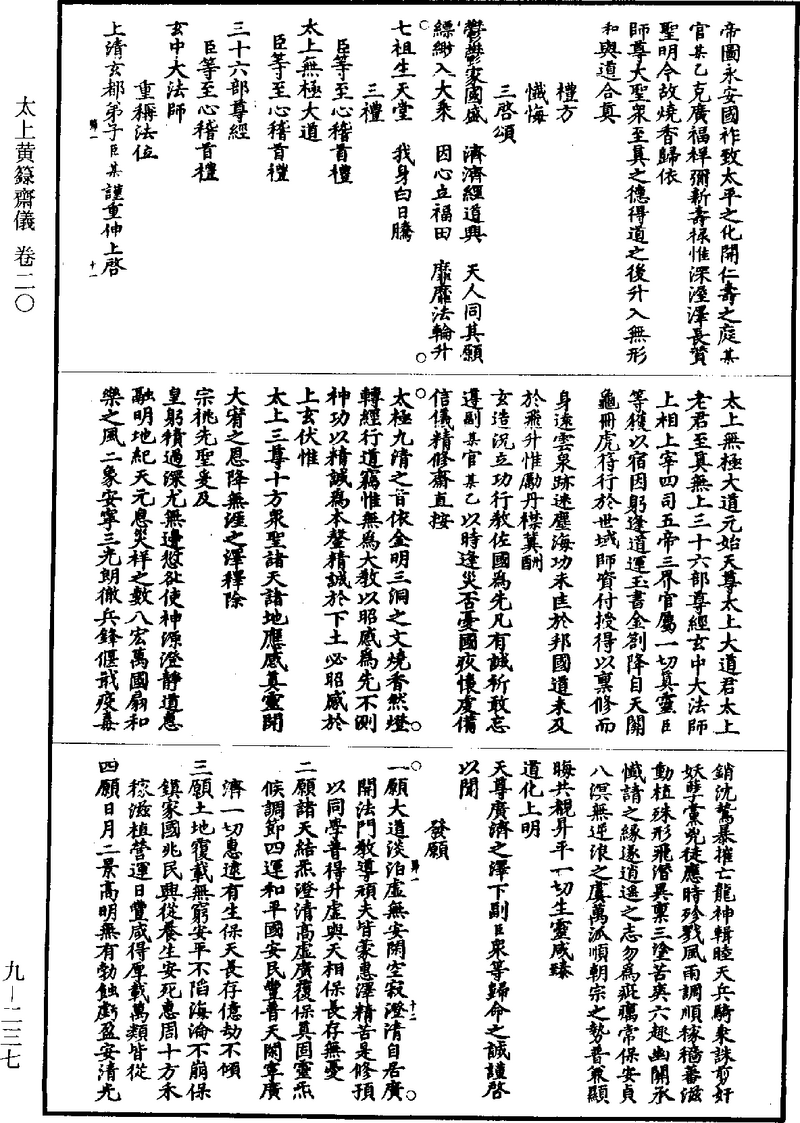 太上黄籙齋儀 卷二〇
九－二三七
帝圖永安國祚致太平之化開仁壽之庭某
官某乙克廣福祥彌新壽祿惟深溼澤長贊
聖明今故燒香歸依
師尊大聖眾至真之德得道之後升入無形
和與道合真
禮方
懺悔
三啓頌
鬱鬱家國盛 濟濟經道興 天人同其願
縹緲入大乘 因心立福田 靡靡法輪升
七祖生天堂 我身白日騰
三禮
臣等至心稽首禮
太上無極大道
臣等至心稽首禮
三十六部尊經
臣等至心稽首禮
玄中大法師
重稱法位
上清玄都弟子臣某謹重伸上啓
太上無極大道元始天尊太上大道君太上
老君至真無上三十六部尊經玄中大法師
上相上宰四司五帝三界官屬一切真靈臣
等獲以宿因躬逢道運玉書金劄降自天關
龜冊虎符行於世域師資付授得以稟修而
身遠雲泉跡迷塵海功未匡於邦國道未及
於飛升惟勵丹襟冀酬
玄造況立功行教佐國為先凡有誠祈敢忘
遵副某官某乙以時逢災否憂國疚懷虔備
信儀精修齋直按
太極九清之旨依金明三洞之文燒香然燈
轉經行道竊惟無為大教以昭感為先不測
神功以精誠為本罄精誠於下土必昭感於
上玄伏惟
太上三尊十方眾聖諸天諸地應感真靈開
大宥之恩降無涯之澤釋除
宗祧先聖爰及
皇躬積過深尤無邊愆咎使神源澄靜道惠
融明地紀天元息災祥之數八宏萬國扇和
樂之風二象安寧三光朗徹兵鋒偃戢疫毒
銷沈鷙暴摧亡龍神輯睦天兵騎乘誅剪奸
妖孽黨兇徒應時殄戮風雨調順稼穡蕃滋
動植殊形飛潛異稟三塗苦爽六趣幽關承
懺請之緣遂逍遙之志勿為疵癘常保安貞
八溟無逆浪之虞萬派順朝宗之勢普兼顯
晦共覩昇平一切生靈咸臻
道化上明
天尊廣濟之澤下副臣眾等歸命之誠謹啓
以聞
發願
一願大道淡泊虛無安閑空寂澄清自居廣
開法門教導頑夫皆蒙惠澤精苦是修預
以同學普得升虛與天相保長存無憂
二願諸天結炁澄清高虛廣覆保真固靈炁
候調節四運和平國安民豐普天閑寧廣
濟一切惠逮有生保天長存億劫不傾
三願土地覆載無窮安平不陷海淪不崩保
鎮家國兆民興從養生安死惠周十方禾
稼滋植營運日豐咸得厚載萬類皆從
四願日月二景高明無有勃蝕虧盈安清光